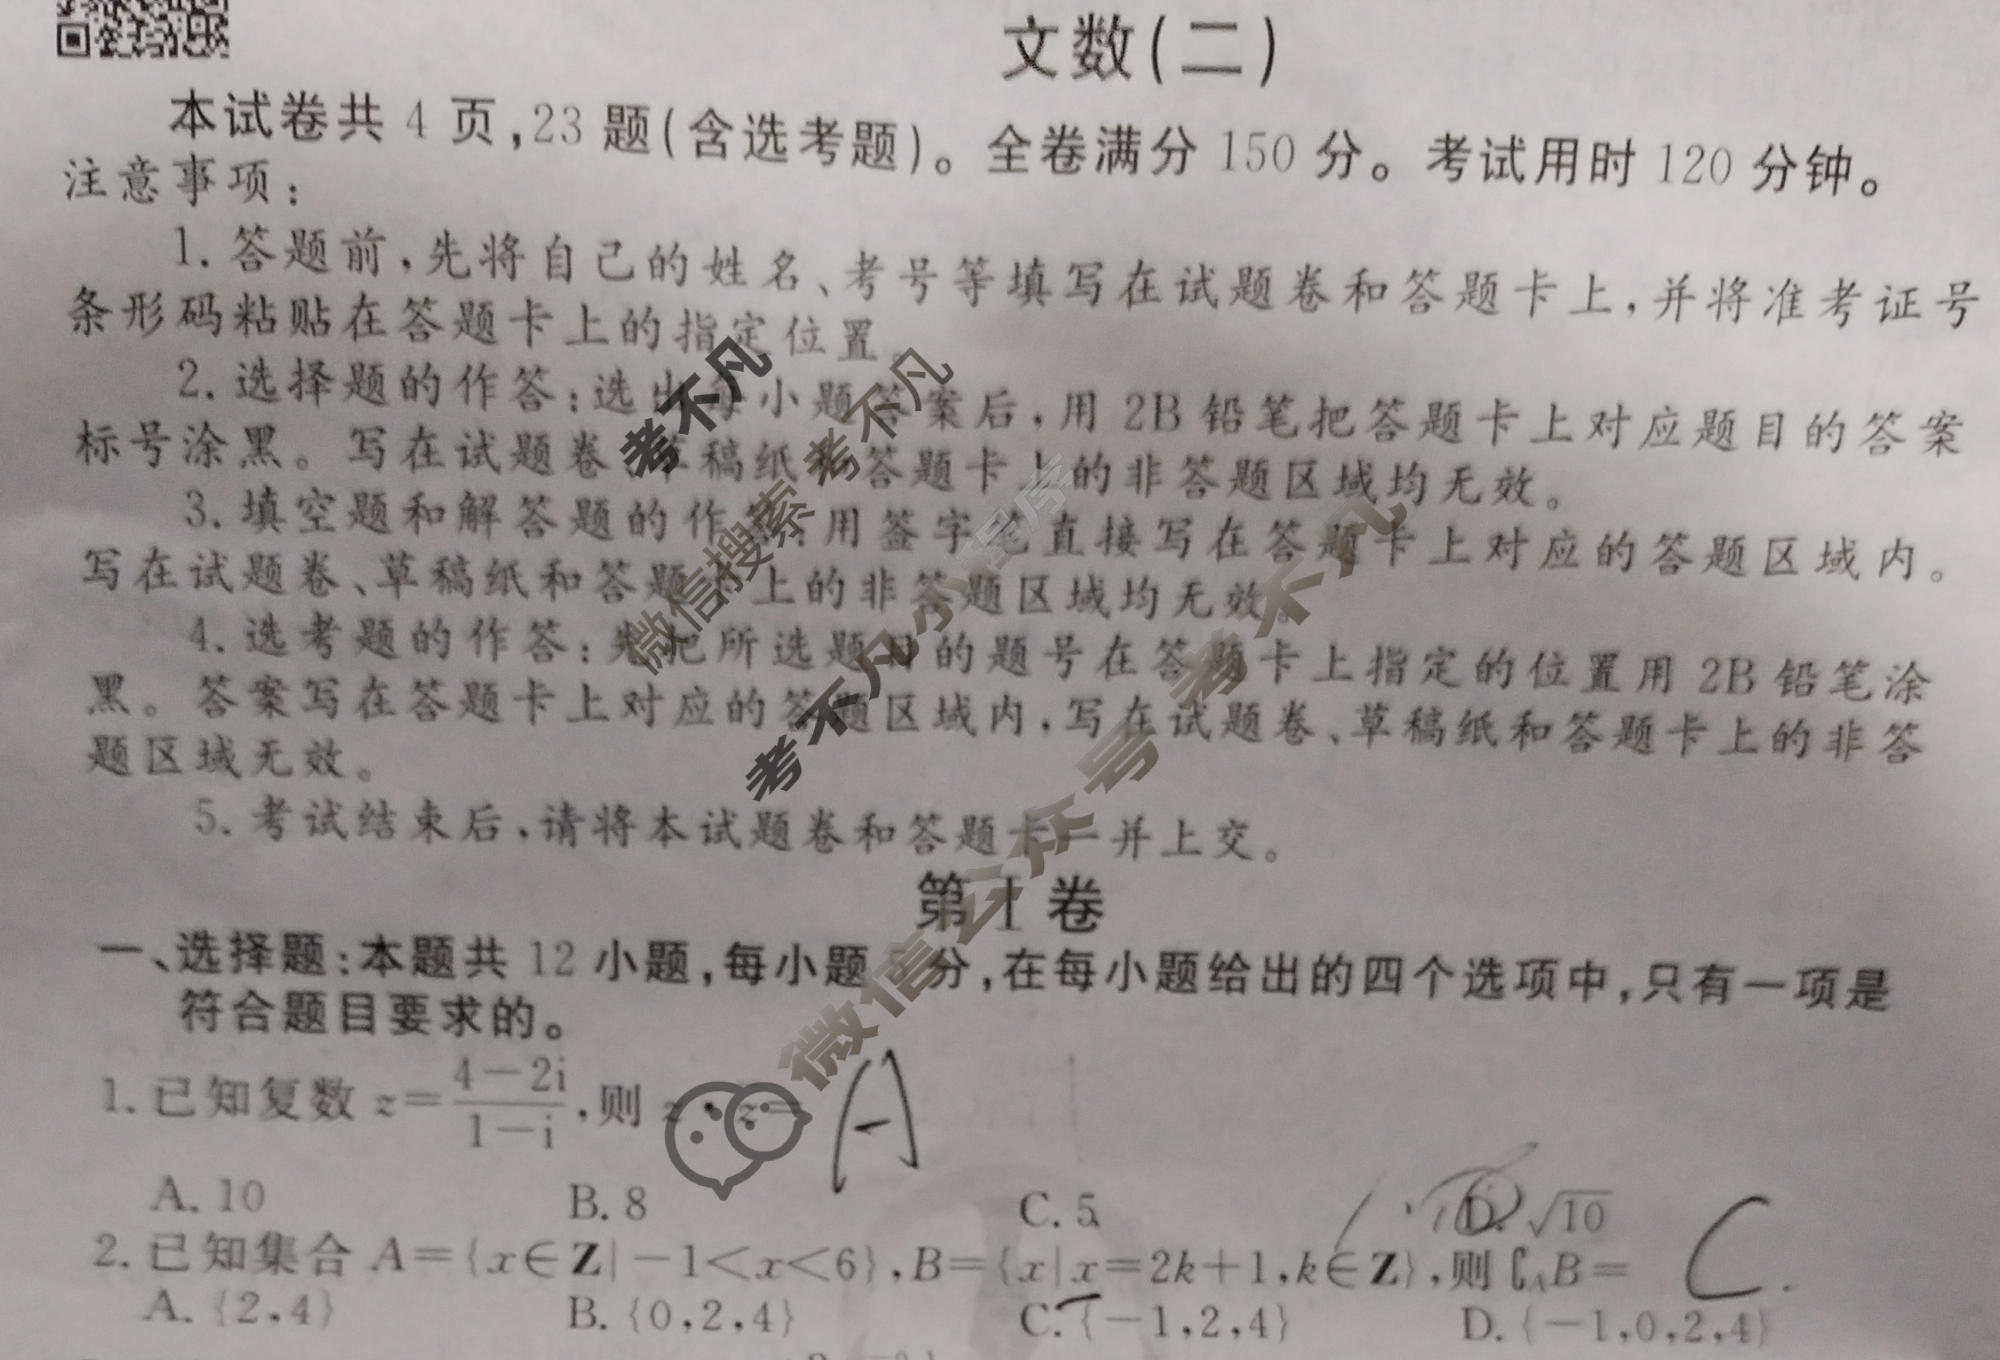 文数(二)
本试卷共 4 页,23 题(含选考题)。全卷满分 150 分。考试用时 120 分钟。
注意事项:
1. 答题前,先将自己的姓名、考号等填写在试题卷和答题卡上,并将准考证号
条形码粘贴在答题卡上的指定位置。
2. 选择题的作答:选出每小题答案后,用 2B 铅笔把答题卡上对应题目的答案
标号涂黑。写在试题卷、草稿纸 答题卡上的非答题区域均无效。
3. 填空题和解答题的作答:用签字笔直接写在答题卡上对应的答题区域内。
写在试题卷、草稿纸和答题卡上的非答题区域均无效。
4. 选考题的作答:先把所选题目的题号在答题卡上指定的位置用 2B 铅笔涂
黑。答案写在答题卡上对应的答题区域内,写在试题卷、草稿纸和答题卡上的非答
题区域无效。
5. 考试结束后,请将本试题卷和答题卡一并上交。
第 I 卷
一、选择题:本题共 12 小题,每小题 分,在每小题给出的四个选项中,只有一项是
符合题目要求的。
1. 已知复数 z=\frac{4-2i}{1-i},则 z·z= A
A. 10 B. 8 C. 5 D. √10
2. 已知集合 A={x∈Z|-1<x<6},B={x|x=2k+1,k∈Z},则∁_AB= C.
A. {2,4} B. {0,2,4} C. {-1,2,4} D. {-1,0,2,4}
考不凡
考不凡
微信搜索
考不凡小程序
微信公众号 考不凡